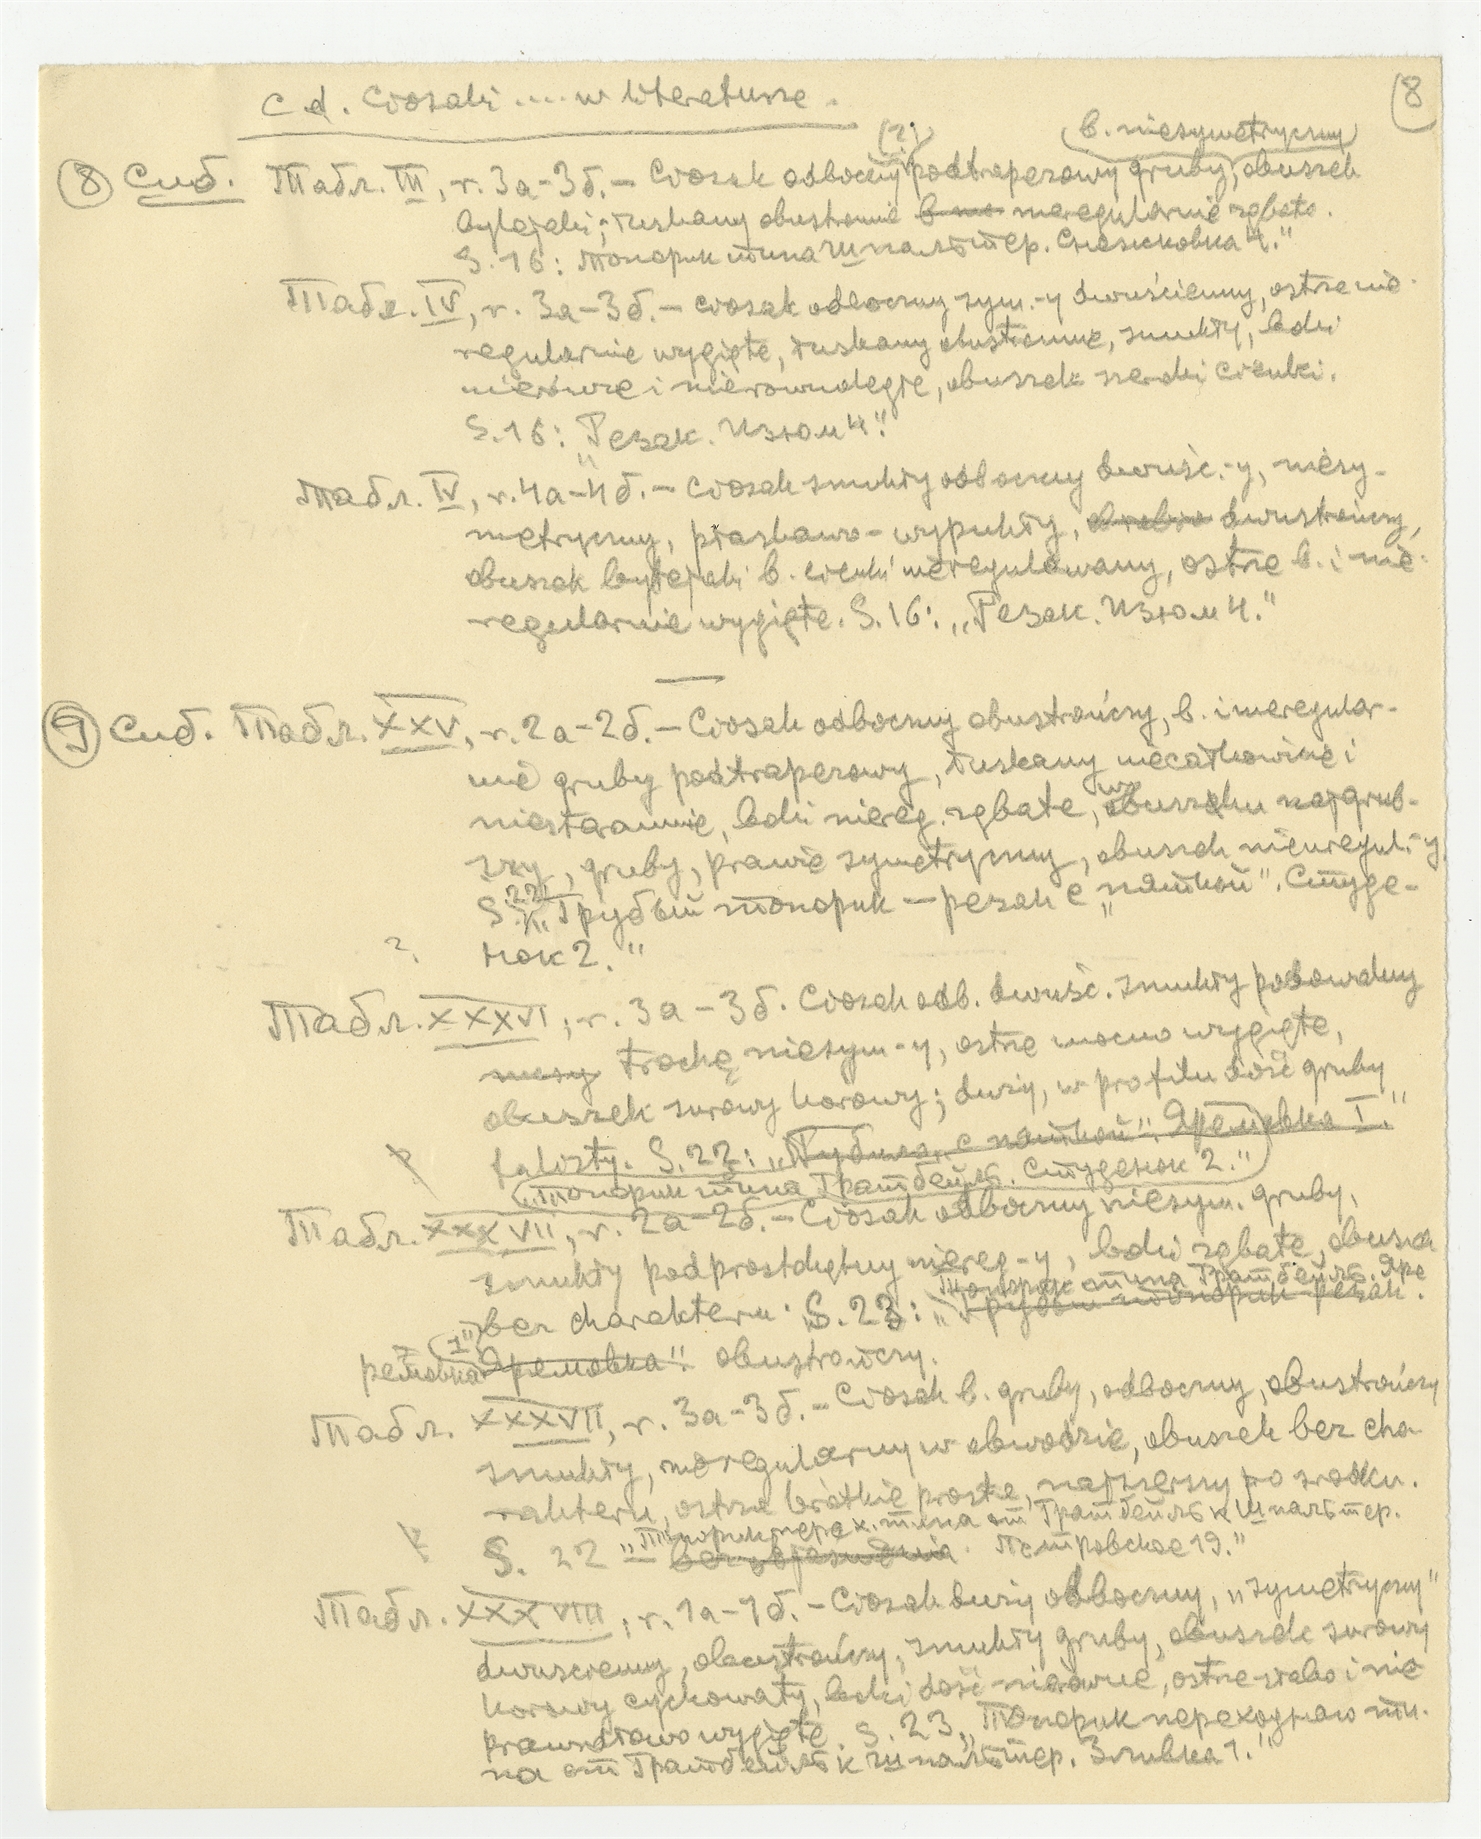 c d. Ciosaki .... w literaturze.
8
(?) b. niesymetryczny
8 Сиб. Табл. III, r. 3a-3б. – Ciosak odboczny podtrapezowy gruby, obuszek
bylejaki; łuskany obustronnie nieregularnie zębate.
S. 16: топорик типа шпальтер. Снежковка 4."
Табл. IV, r. 3a-3б. – ciosak odboczny sym.-y dwuścienny, ostrze nie-
regularnie wygięte, łuskany obustronnie, smukły, boki
nierówne i nierównoległe, obuszek szeroki cienki.
S. 16: "Резак. Изюм 4".
Табл. IV, r. 4a-4б. – Ciosak smukły odboczny dwuśc.-y, niesy-
metryczny, płaskawo-wypukły, dwustrończy,
obuszek bylejaki b. cienki nieregulowany, ostrze b. i nie-
regularnie wygięte. S. 16: „Резак. Изюм 4."
9 Сиб. Табл. XXV, r. 2a-2б. – Ciosak odboczny obustrończy, b. i nieregular-
nie gruby podtrapezowy, łuskany niecałkowicie i
niestarannie, boki niereg. zębate, w obuszku najgrub-
szy, gruby, prawie symetryczny, obuszek nieuregul.-y
S. 22: „Грубый топорик – резак с „пяткой". Студе-
? нок 2."
Табл. XXXVI, r. 3a – 3б. Ciosak odb. dwuśc. smukły podowalny
niesy trochę niesym-y, ostrze mocno wygięte,
obuszek surowy korowy; duży, w profilu dość gruby
falisty. S. 22: „Рубило с пяткой". Яремовка I."
„Топорик типа Грамбейльс. Студенок 2."
Табл. XXXVII, r. 2a-2б. – Ciosak odboczny niesym. gruby,
smukły podprostokątny niereg-y, boki zębate, obuszek
Топорик типа Грамбейльс. Яре
bez charakteru. S. 23: „Грубый топорик резак.
ремовка 1" Яремовка". obustrończy.
Табл. XXXVII, r. 3a-3б. – Ciosak b. gruby, odboczny, obustrończy
smukły, nieregularny w obwodzie, obuszek bez cha-
rakteru, ostrze krótkie proste, najszerszy po środku.
„Топорик перех. типа от Грамбейльс к шпальтер.
S. 22 – bez objaśnienia. Петровское 19."
Табл. XXXVIII, r. 1a-1б. – Ciosak duży odboczny, „symetryczny"
dwuścienny, obustrończy, smukły gruby, obuszek surowy
korowy cyckowaty, boki dość nierówne, ostrze słabo i nie
prawidłowo wygięte. S. 23 „Топорик переходного ти-
па от Грамбейльс к шпальтер. Зливка 1."